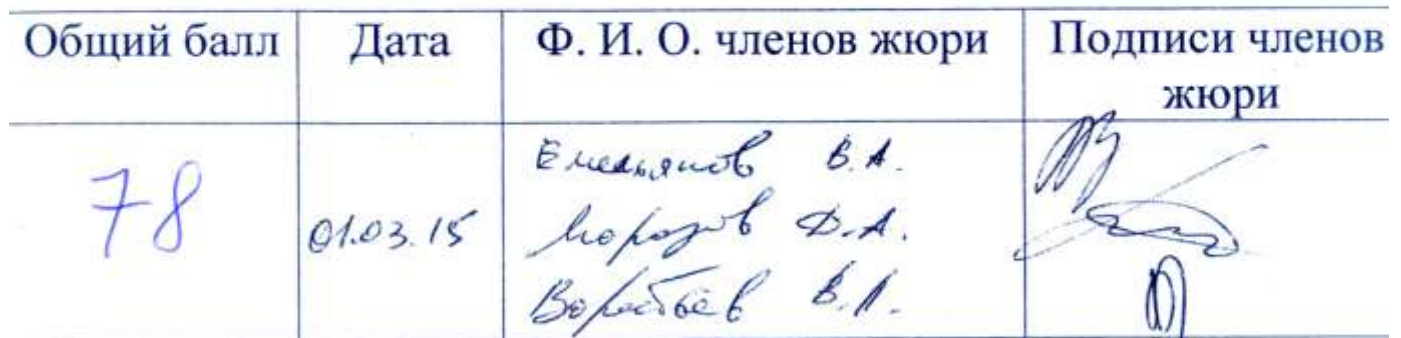 Общий балл Дата Ф. И. О. членов жюри Подписи членов
жюри
78 01.03.15
Емельянов В.А.
Морозов Д.А.
Воробьев В.Л.